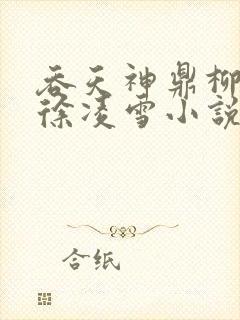 吞天神鼎柳
徐凌雪小說
合纸